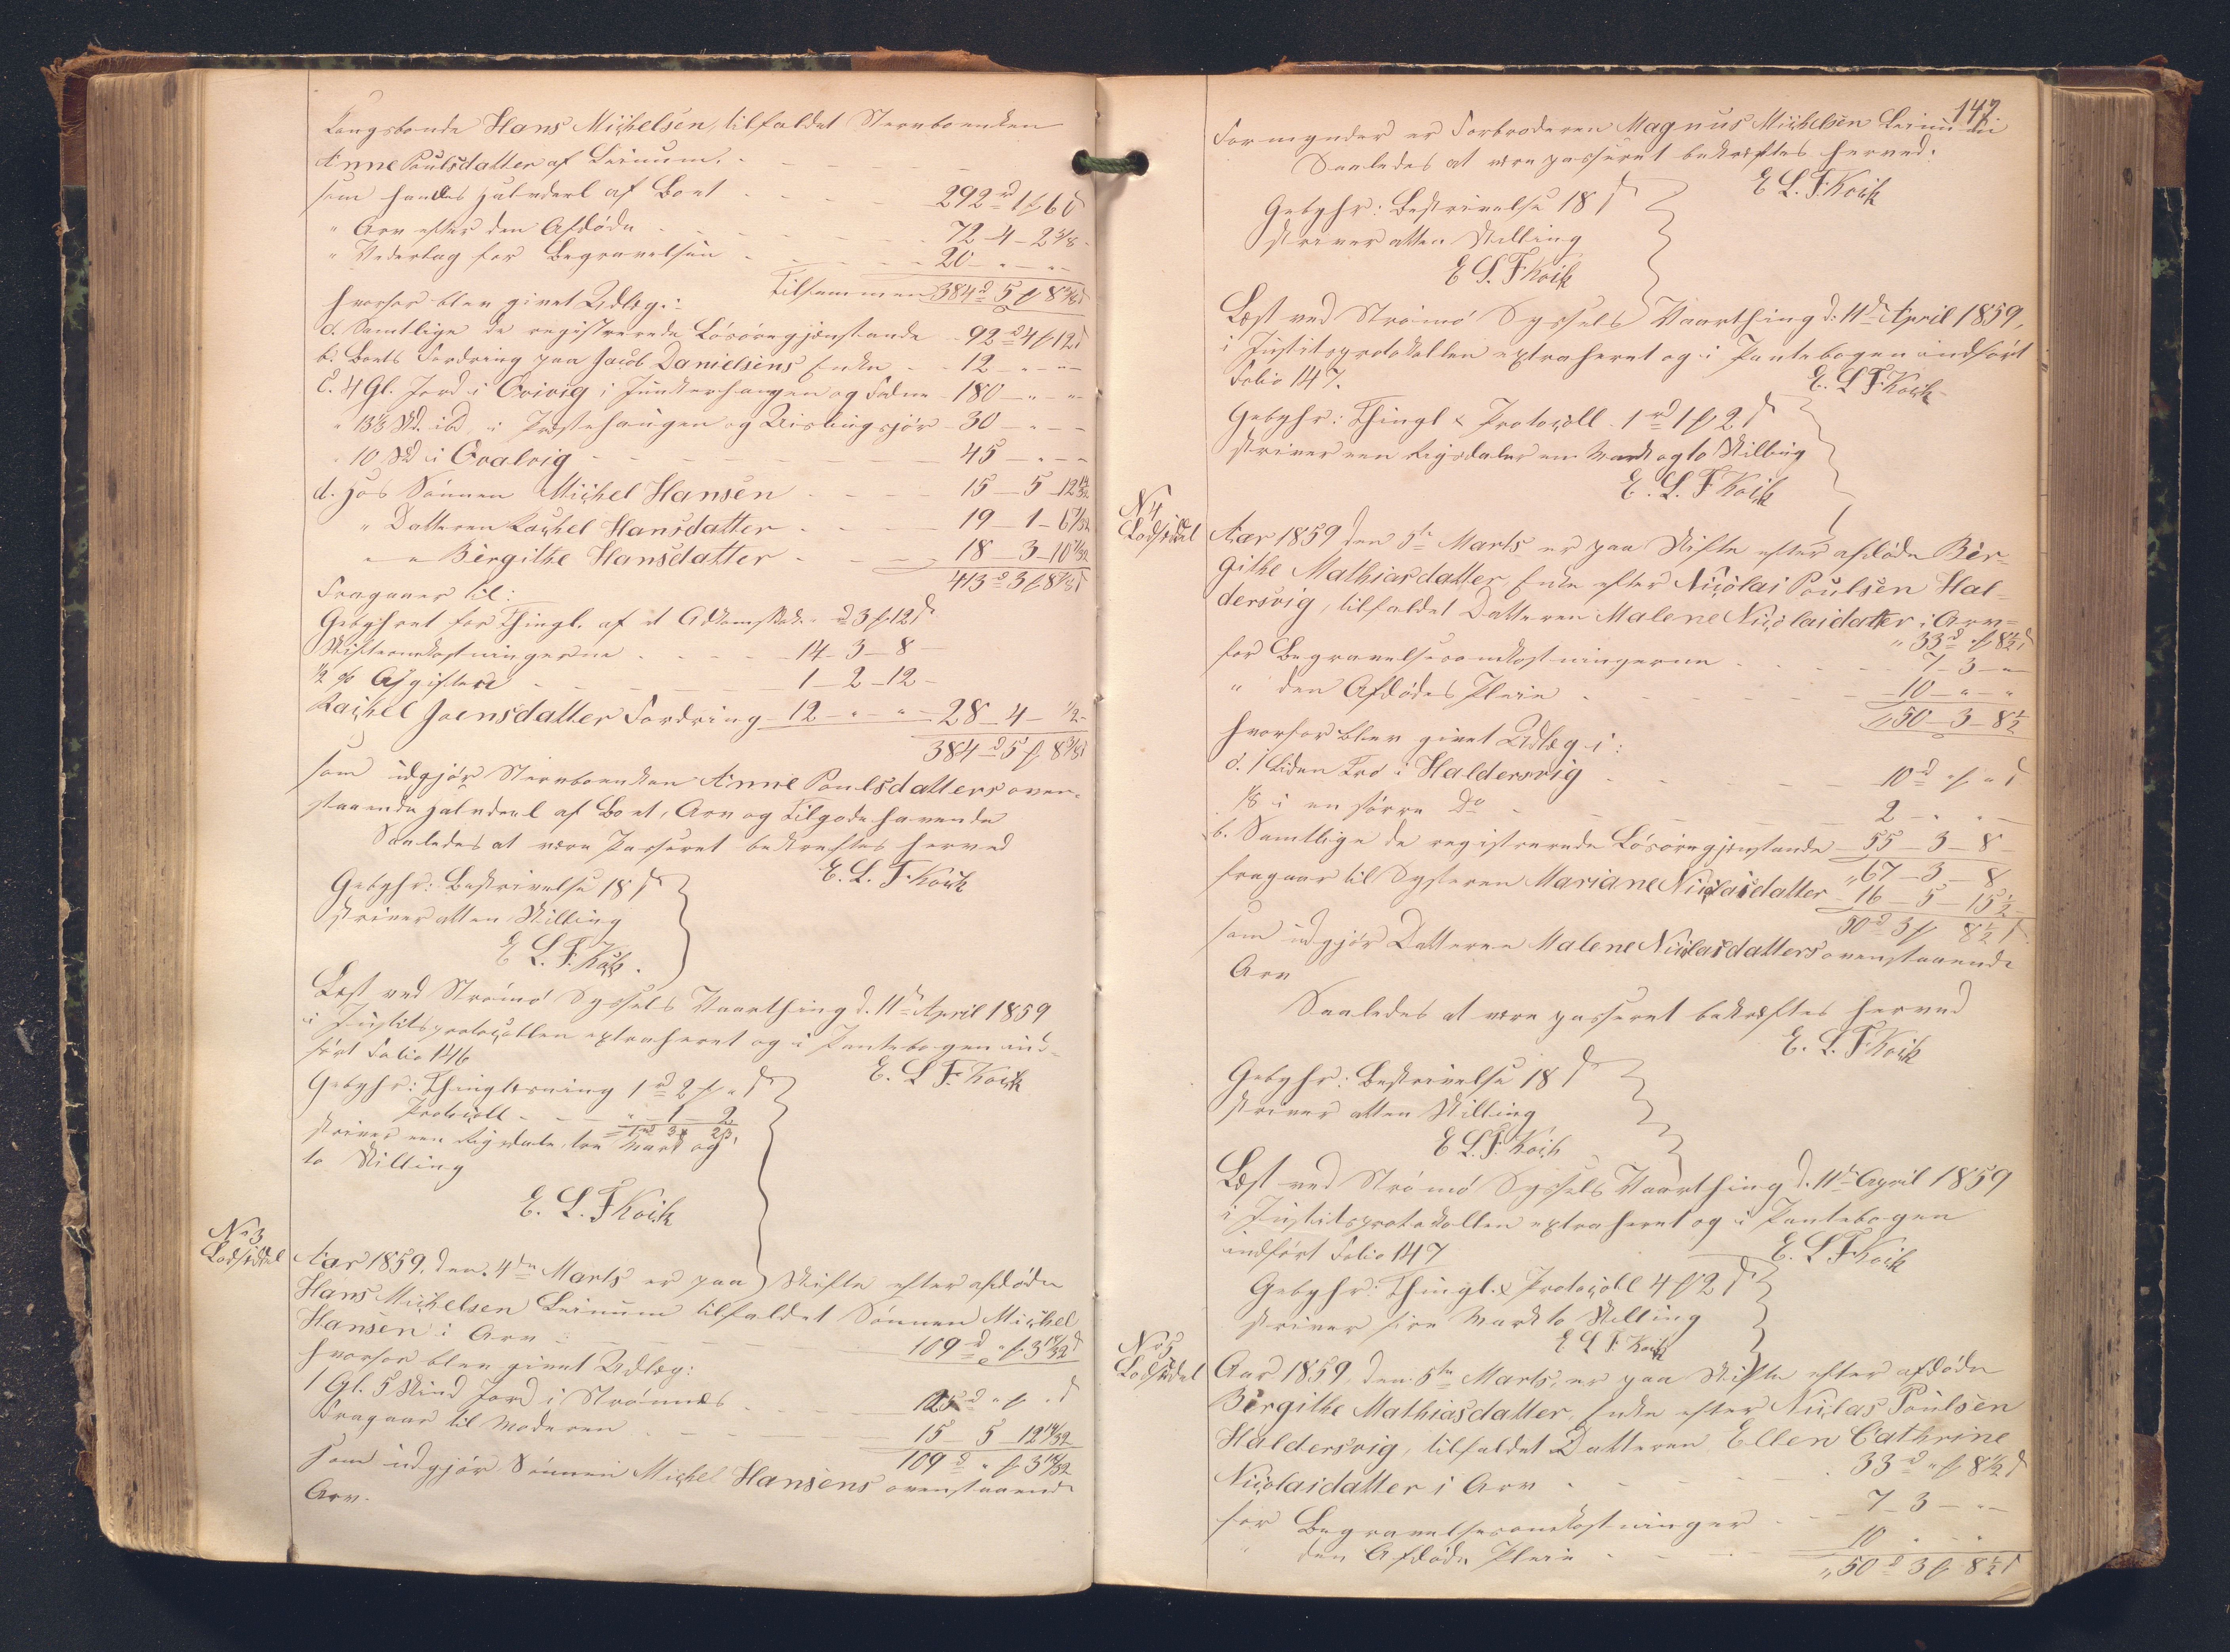 Kongsbonde Hans Michelsen, tilfaldet Stervboenken
Anne Poulsdatter af Leinum.
som hendes halvdeel af Boet 292 rd 1 ℳ 6 ß
" Arv efter den Afdøde 72 - 4 - 2 3/8
" Vederlag for Begravelsen 20 - " - "
Tilsammen 384 rd 5 ℳ 8 3/8 ß
hvorfor blev givet Udlæg:
a. Samtlige de registrerede Løsøregjenstande 92 rd 4 ℳ 12 ß
b. Boets Fordring paa Jacob Danielsens Enke 12 - " - "
c. 4 Gl. Jord i Qvivig i Junkerhaugen og 180 - " - "
" 13⅓ Skd. ibd. i Præstehaugen og 30 - " - "
" 10 Skd i Qvalvig 45 - " - "
d. Hos Sønnen Michel Hansen 15 - 5 - 12 14/32
" Datteren Rachel Hansdatter 19 - 1 - 6 7/32
" - " Bergithe Hansdatter 18 - 3 - 10 7/32
413 rd 3 ℳ 8 7/8 ß
Fragaaer til:
Gebyhret for Thingl. af et Adkomstdok. " rd 3 ℳ 12 ß
Skifteomkostningerne 14 - 3 - 8
½ % Afgiften 1 - 2 - 12
Rachel Joensdatter Fordring 12 - " - " 28 - 4 - ½
384 rd 5 ℳ 8 3/8 ß
som udgjør Stervboenken Anne Poulsdatters oven-
staaende halvdeel af Boet, Arv og Tilgodehavende
Saaledes at være Passeret bekræftes herved
E. L. F. Koch
Gebyhr: Beskrivelse 18 ß
skriver atten Skilling
E. L. F. Koch.
Læst ved Strømø Syssels Vaarthing d. 11te April 1859
i Justitsprotocollen extraheret og i Pantebogen ind-
ført Folio 146
E. L. F. Koch
Gebyhr: Thinglæsning 1 rd 2 ℳ " ß
Protocoll " - 1 - 2
1 rd 3 ℳ 2 ß
skriver een Rigsdaler, tre Mark og
to Skilling
E. L. F. Koch
No 3
Lodseddel
Aar 1859, den 4de Marts er paa Skifte efter afdøde
Hans Michelsen Leinum tilfaldet Sønnen Michel
Hansen i Arv 109 rd " ℳ 3 14/32 ß
hvorfor blev givet Udlæg:
1 Gl. 5 Skind Jord i Strømnæs 125 rd " ℳ " ß
Fragaar til Moderen 15 - 5 - 12 14/32
109 rd " ℳ 3 14/32
som udgjør Sønnen Michel Hansens ovenstaaende
Arv.
147
Formynder er Farbroderen Magnus Michelsen Leinum
Saaledes at være passeret bekræftes herved:
E. L. F. Koch
Gebyhr: Beskrivelse 18 ß
skriver atten Skilling
E. L. F. Koch
Læst ved Strømø Syssels Vaarthing d. 11te April 1859,
i Justitsprotokollen extraheret og i Pantebogen indført
Folio 147.
E. L. F. Koch
Gebyhr: Thingl & Protocoll 1 rd 1 ℳ 2 ß
skriver een Rigsdaler en Mark og to Skilling
E. L. F. Koch
N 4
Lodseddel
Aar 1859 den 5te Marts er paa Skifte efter afdøde Ber-
githe Mathiasdatter, Enke efter Nicolai Poulsen Hal-
dersvig, tilfaldet Datteren Malene Nicolaidatter i Arv
" 33 rd " ℳ 8½ ß
for Begravelsesomkostningerne 7 - 3 - "
" den Afdødes Pleie 10 - " - "
" 50 - 3 - 8½
hvorfor blev givet Udlæg i:
a. 1 liden i Haldersvig 10 rd " ℳ " ß
⅛ i en større Do 2 - " - "
b. Samtlige de registrerede Løsøregjenstande 55 - 3 - 8
" 67 - 3 - 8
fragaar til Systeren Mariane Nicolaidatter 16 - 5 - 15½
50 rd 3 ℳ 8½ ß
som udgjør Datteren Malene Nicolaidatters ovenstaaende
Arv
Saaledes at være passeret bekræftes herved
E. L. F. Koch
Gebyhr: Beskrivelse 18 ß
skriver atten Skilling
E. L. F. Koch
Læst ved Strømø Syssels Vaarthing d. 11te April 1859
i Justitsprotokollen extraheret og i Pantebogen
indført Folio 147
E. L. F. Koch
Gebyhr: Thingl. & Protocoll 4 ℳ 2 ß
skriver fire Mark to Skilling
E. L. F. Koch
No 5
Lodseddel
Aar 1859, den 5te Marts, er paa Skifte efter afdøde
Bergithe Mathiasdatter, Enke efter Nicolai Poulsen
Haldersvig, tilfaldet Datteren Ellen Cathrine
Nicolaidatter i Arv 33 rd " ℳ 8½ ß
for Begravelsesomkostninger 7 - 3 - "
" den Afdøde Pleie 10 - " - "
" 50 rd 3 ℳ 8½ ß